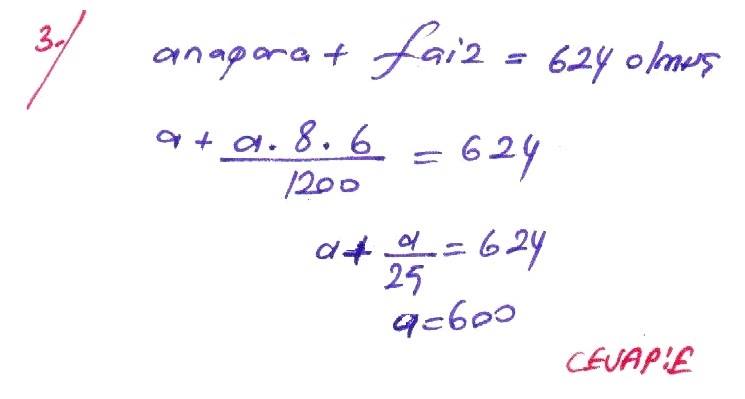 3-/ anapara + faiz = 624 olmuş
a + a.8.6/1200 = 624
a + a/25 = 624
a = 600
CEVAP:E